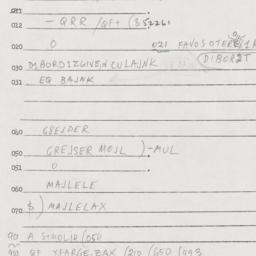 011
012 - QRR /QF+ (352261
020 0 021 FAVOSOTER
030 DIBORDIZGIVEN CULAJNK (DIBORZT
031 EQ BAJNK
040 GREJDER
050 GREJSER MOJL )-MUL
051 0
060 MAJLELE
070 $ ) MAJLELAX
090 A SIMOLIN /051
091 QF YFARGE.BAX /210 /650 /493